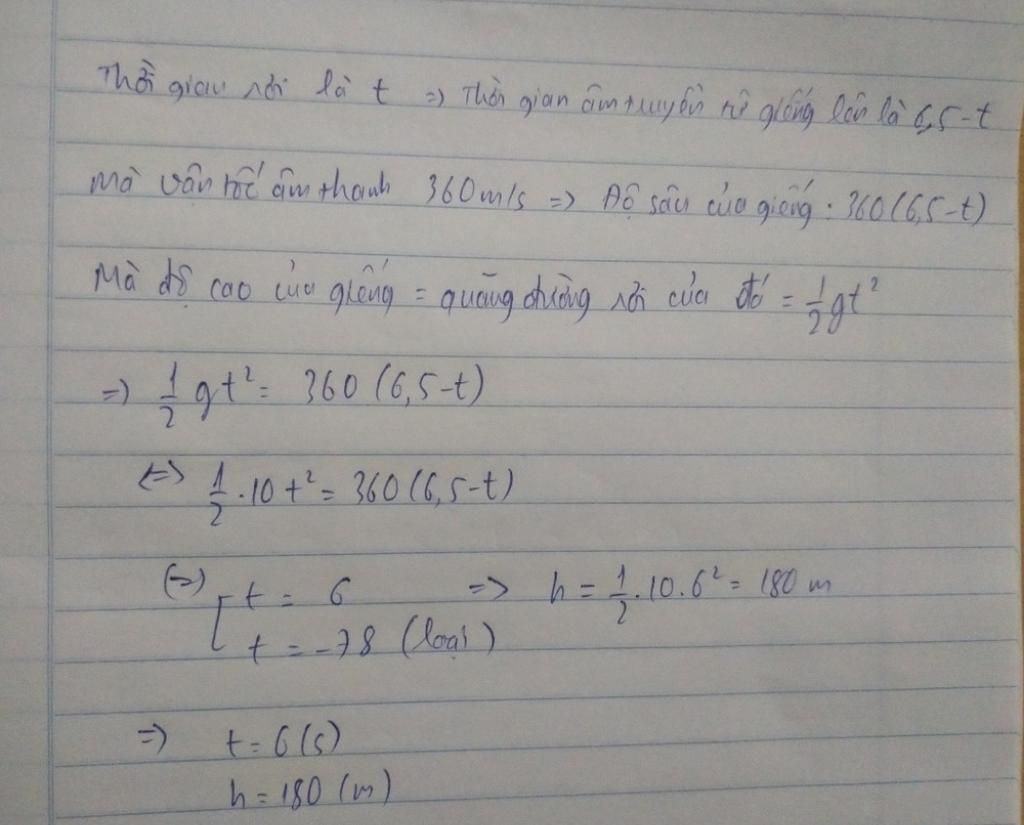 Thời gian rơi là t => Thời gian âm truyền từ giếng lên là 6,5-t
Mà vận tốc âm thanh 360m/s => Độ sâu của giếng: 360(6,5-t)
Mà độ cao của giếng = quãng đường rơi của đá = 1/2 gt²
=> 1/2 gt² = 360(6,5-t)
<=> 1/2 .10t² = 360(6,5-t)
<=> [ t = 6 => h = 1/2 .10.6² = 180 m
t = -78 (loại)
=> t = 6 (s)
h = 180 (m)